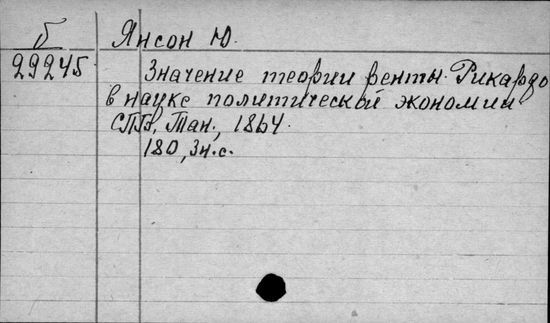 Б Янсон Ю.
29245 Значение теории ренты Рикардо
в науке политической экономии
СПБ, Тип., 1864.
180, 3н.с.